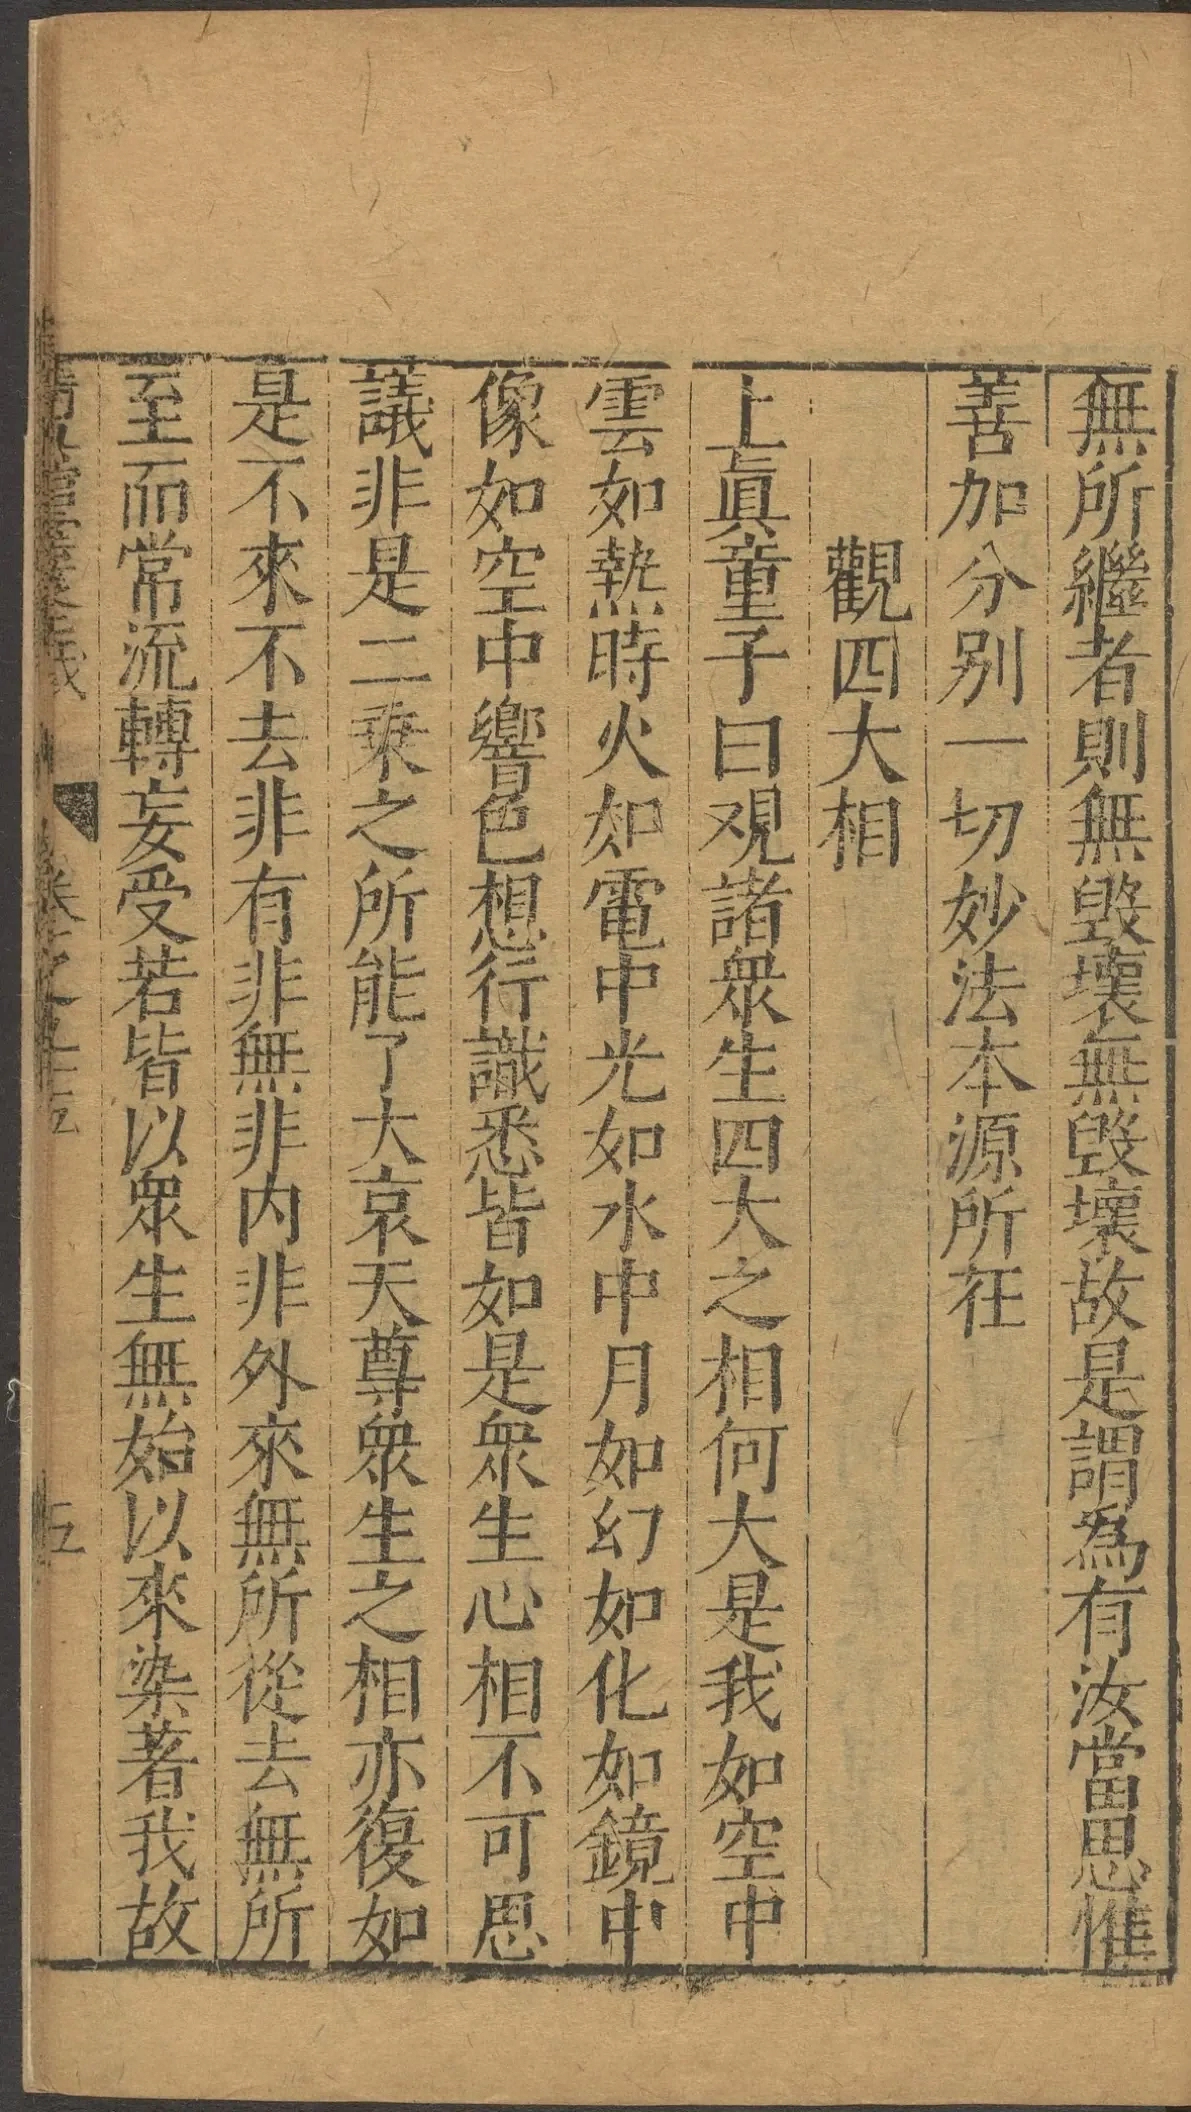 無所繼者則無毀壞無毀壞故是謂為有汝當思惟
善加分别一切妙法本源所在
觀四大相
上眞童子曰观諸衆生四大之相何大是我如空中
雲如熱時火如電中光如水中月如幻如化如鏡中
像如空中響色想行識悉皆如是衆生心相不可思
議非是二乘之所能了大哀天尊衆生之相亦復如
是不來不去非有非無非内非外來無所從去無所
至而常流轉妄受若皆以衆生無始以來染著我故
卷之五
五